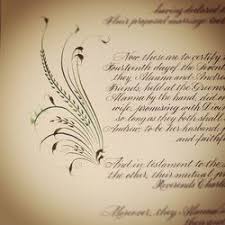 having declared
their proposed marriage
Now these are to certify
Fourteenth day of the Seventh
they, Alanna and Andrew
Friends, held at the Greenw
Alanna by the hand, did on
wife, promising with Divin
so long as they both shall
Andrew to be her husband,
and faithf
And in testament to the
the other, their mutual pr
Reverends Charle
Moreover, they, Alanna